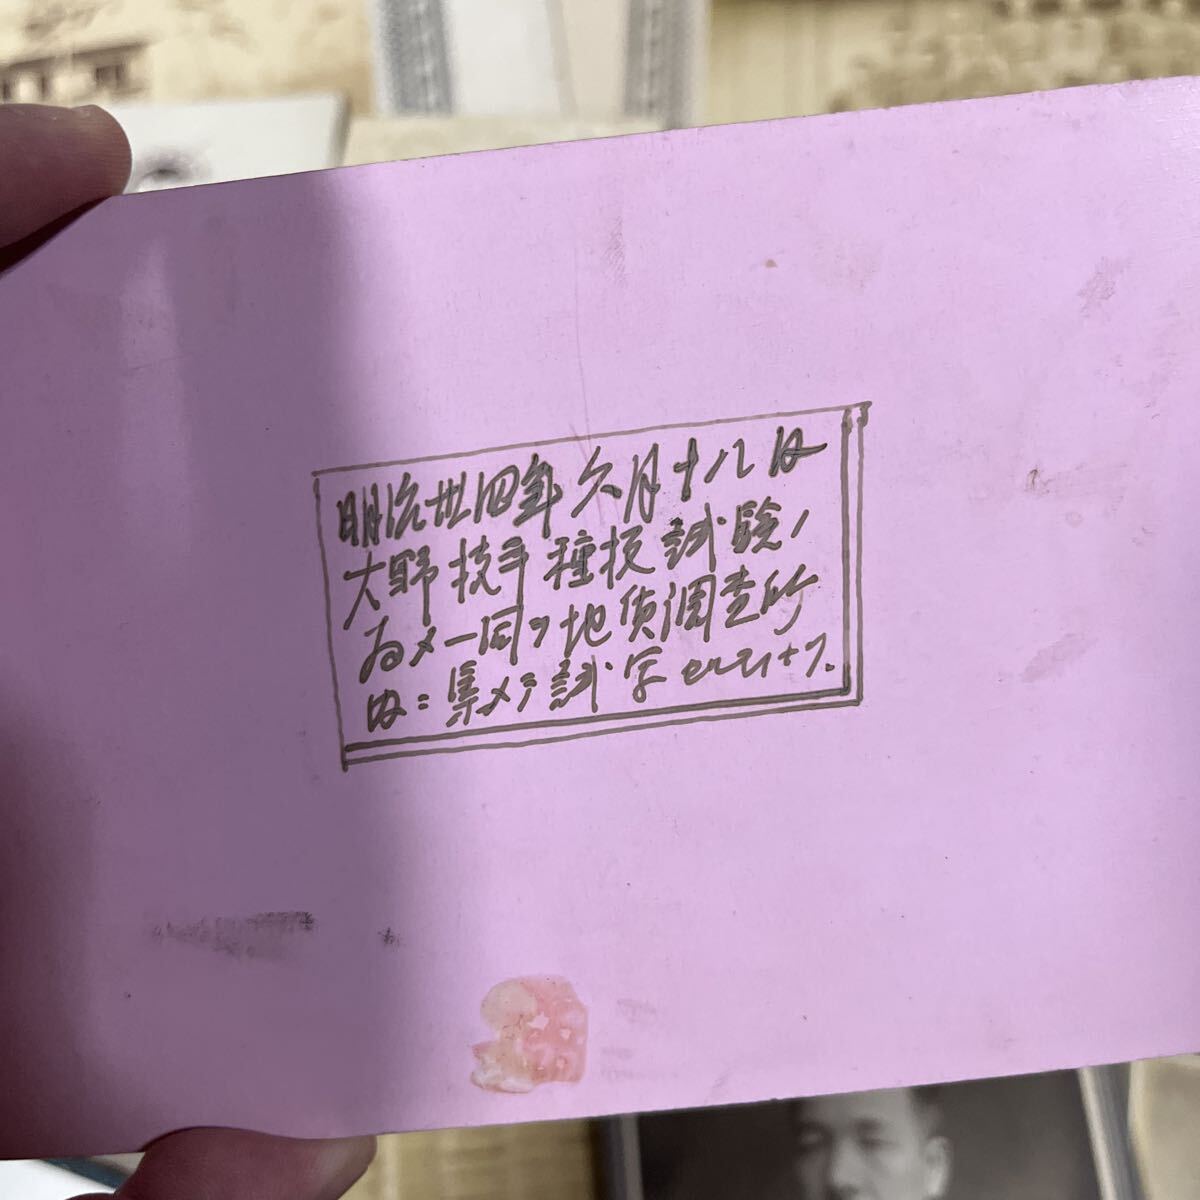 明治卅四年六月十八日
大野技手種板試験ノ
為メ一同ヲ地質調査所
内ニ集メテ試写セルモノナリ